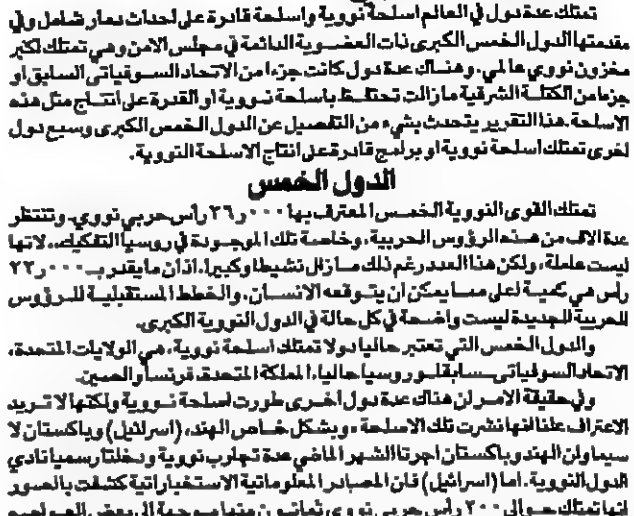 تمتلك عدة دول في العالم اسلحة نووية واسلحة قادرة على احداث دمار شامل وفي
مقدمتها الدول الخمس الكبرى ذات العضوية الدائمة في مجلس الامن وهي تمتلك اكبر
مخزون نووي عالمي. وهناك عدة دول كانت جزءا من الاتحاد السوفياتي السابق او
جزءا من الكتلة الشرقية ما زالت تحتفظ باسلحة نووية او القدرة على انتاج مثل هذه
الاسلحة. هذا التقرير يتحدث بشيء من التفصيل عن الدول الخمس الكبرى وسبع دول
اخرى تمتلك اسلحة نووية او برامج قادرة على انتاج الاسلحة النووية.
الدول الخمس
تمتلك القوى النووية الخمس المعترف بها ٣٦٫٠٠٠ رأس حربي نووي. وتنتظر
عدة الاف من هذه الرؤوس الحربية، وخاصة تلك الموجودة في روسيا التفكيك.. لانها
ليست عاملة، ولكن هذا العدد رغم ذلك ما زال نشيطا وكبيرا. اذ ان ما يقدر بـ ٢٢٫٠٠٠
رأس هي كمية اعلى مما يمكن ان يتوقعه الانسان. والخطط المستقبلية للرؤوس
الحربية الجديدة ليست واضحة في كل حالة في الدول النووية الكبرى.
والدول الخمس التي تعتبر حاليا دولا تمتلك اسلحة نووية، هي الولايات المتحدة،
الاتحاد السوفياتي سابقا وروسيا حاليا، المملكة المتحدة، فرنسا والصين.
وفي حقيقة الامر ان هناك عدة دول اخرى طورت اسلحة نووية ولكنها لا تريد
الاعتراف علنا انها نشرت تلك الاسلحة، وبشكل خاص الهند، (اسرائيل) وباكستان لا
سيما وان الهند وباكستان اجرتا الشهر الماضي عدة تجارب نووية ودخلتا رسميا نادي
الدول النووية. اما (اسرائيل) فان المصادر المعلوماتية الاستخباراتية كشفت بالصور
انها تمتلك حوالي ٢٠٠ رأس حربي نووي ثمانون منها موجهة الى بعض العواصم